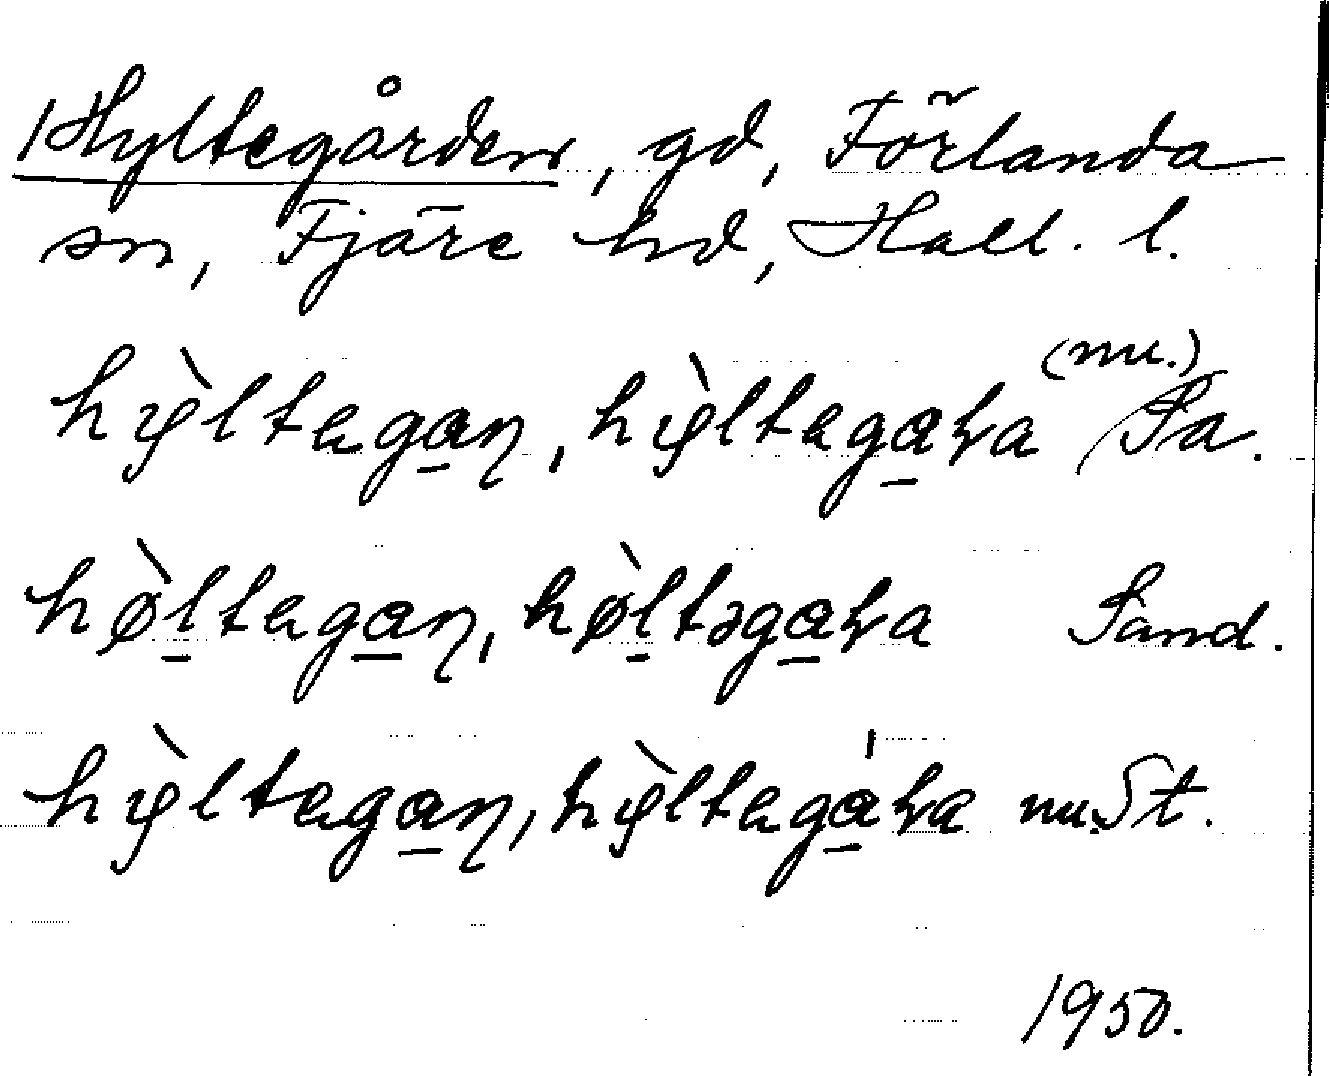 Hyltegården, gd, Förlanda
sn, Fjäre hd, Hall. l.
(nu.)
hỳltegan̡, hỳltegaꞎa Sa.
hø̀ltegan̡, hø̀ltəgaꞎa Sand.
hỳltegan̡, hỳltegáꞎa nu. St.
1950.